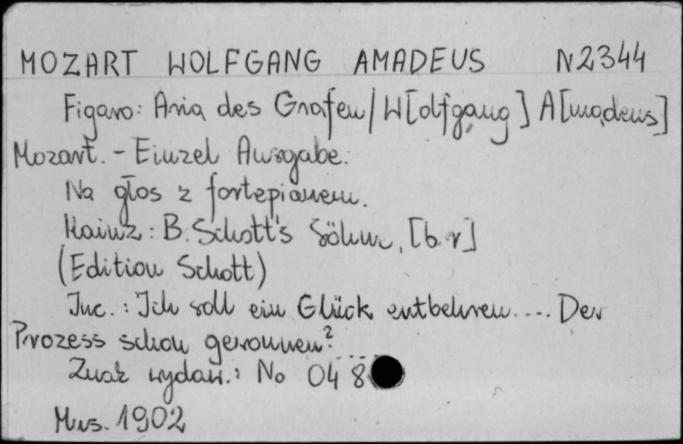 MOZART WOLFGANG AMADEUS N2344
Figaro: Aria des Grafen / W[olfgang] A[madeus]
Mozart. - Einzel Ausgabe.
Na głos z fortepianem.
Mainz: B. Schott's Söhne, [b.r]
(Edition Schott)
Inc.: Ich soll ein Glück entbehren.... Der
Prozess schon gewonnen?
Znak wydaw.: No 04 8
Mus. 1902